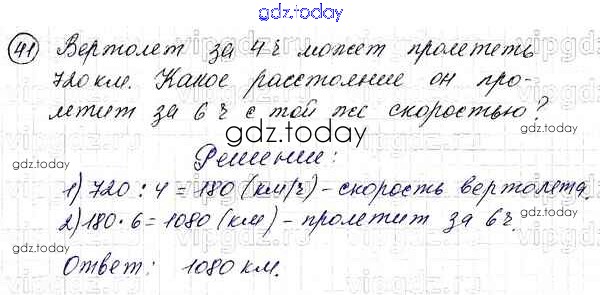 gdz.today
41 Вертолет за 4 ч может пролететь
720 км. Какое расстояние он про-
летит за 6 ч с той же скоростью?
gdz.today
Решение:
1) 720 : 4 = 180 (км/ч) - скорость вертолета.
2) 180 · 6 = 1080 (км) - пролетит за 6 ч.
Ответ: 1080 км.
gdz.today